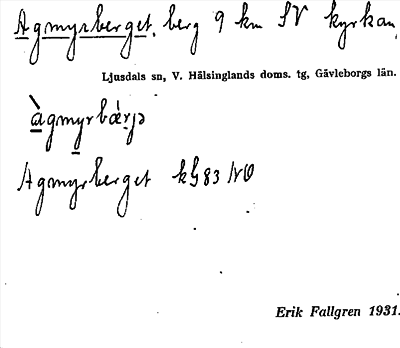 Agmyrberget, berg 9 km SV kyrkan,
Ljusdals sn, V. Hälsinglands doms. tg, Gävleborgs län.
àgmyrbǽrjə
Agmyrberget kG83 NO
Erik Fallgren 1931.